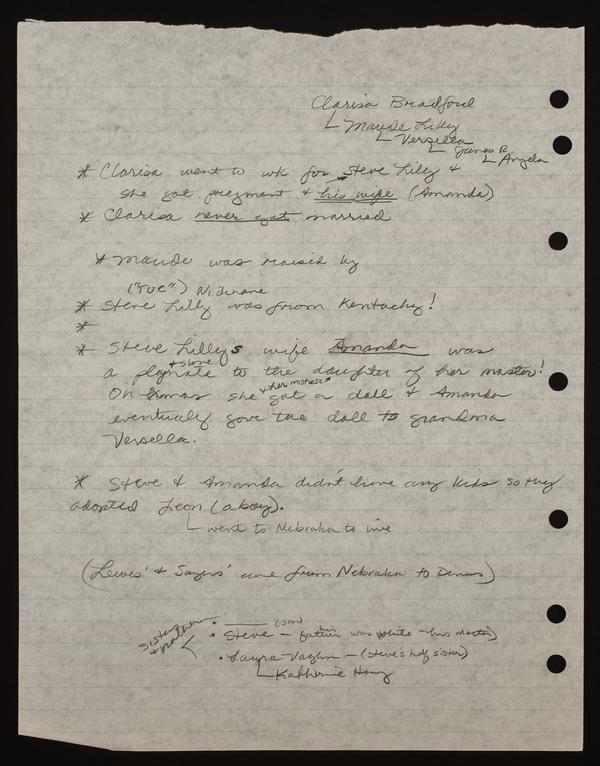 Clarisa Bradford
Maude Lilly
Versella
James R.
Angela
* Clarisa went to wk for Steve Lilly &
she got pregnant & his wife (Amanda)
* Clarisa never got married
* Maude was raised by
("TUE") Nickname
* Steve Lilly was from Kentucky!
*
* Steve Lillys wife Amanda was
& slave
a playmate to the daughter of her master!
& her mistress
On Xmas she got a doll & Amanda
eventually gave the doll to grandma
Versella.
* Steve & Amanda didn't have any kids so they
adopted Leon (a boy).
went to Nebraska to live
(Lewis' & Sayers' came from Nebraska to Denver)
Sister & Mother
• ____ (son)
• Steve – father was white – his master)
• Laura Vaughn – (Steve's half sister)
Katherine